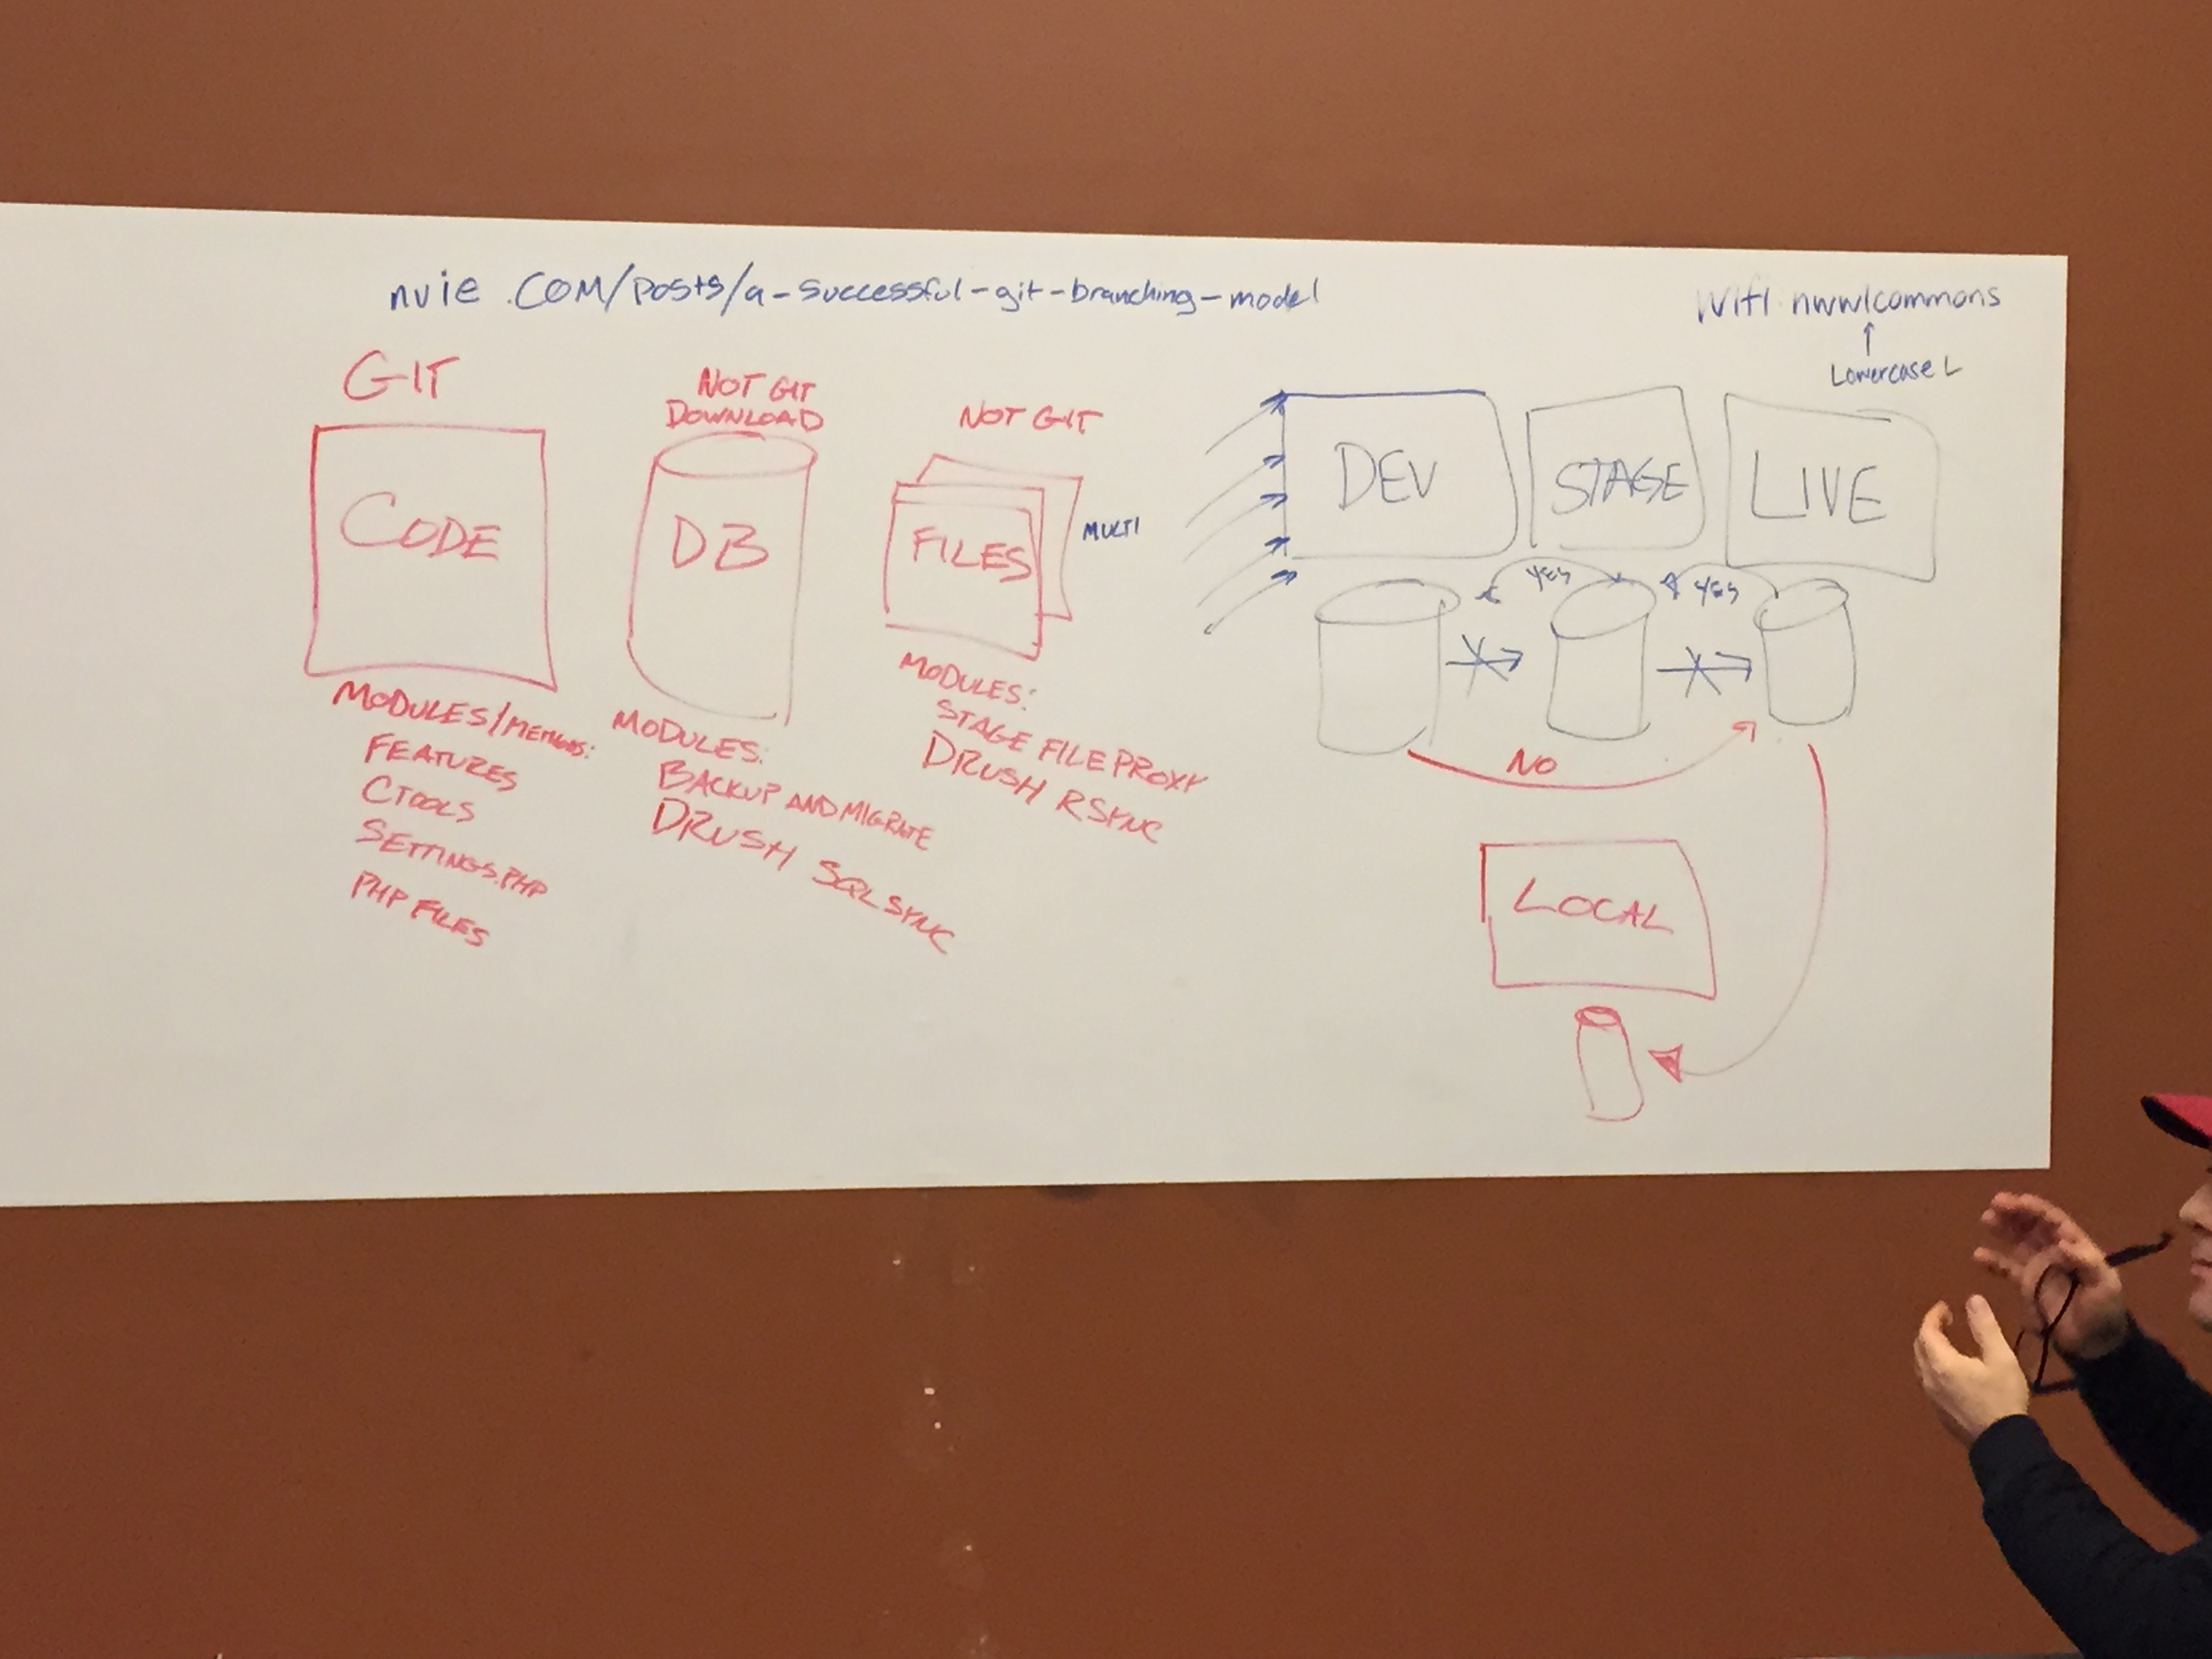 nvie.COM/posts/a-successful-git-branching-model
WIFI nwwlcommons
Lowercase L
GIT
CODE
MODULES/METHODS:
FEATURES
CTOOLS
SETTINGS.PHP
PHP FILES
NOT GIT
DOWNLOAD
DB
MODULES:
BACKUP AND MIGRATE
DRUSH SQL SYNC
NOT GIT
FILES
MULTI
MODULES:
STAGE FILE PROXY
DRUSH RSYNC
DEV
STAGE
LIVE
YES
YES
NO
LOCAL